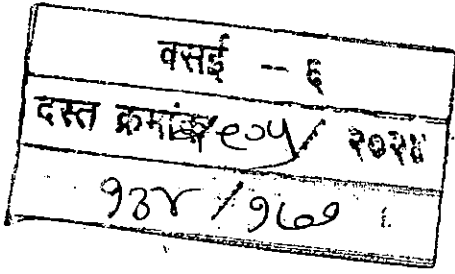 वसई -- ६
दस्त क्रमांक / २०२४
१३४ / १७१